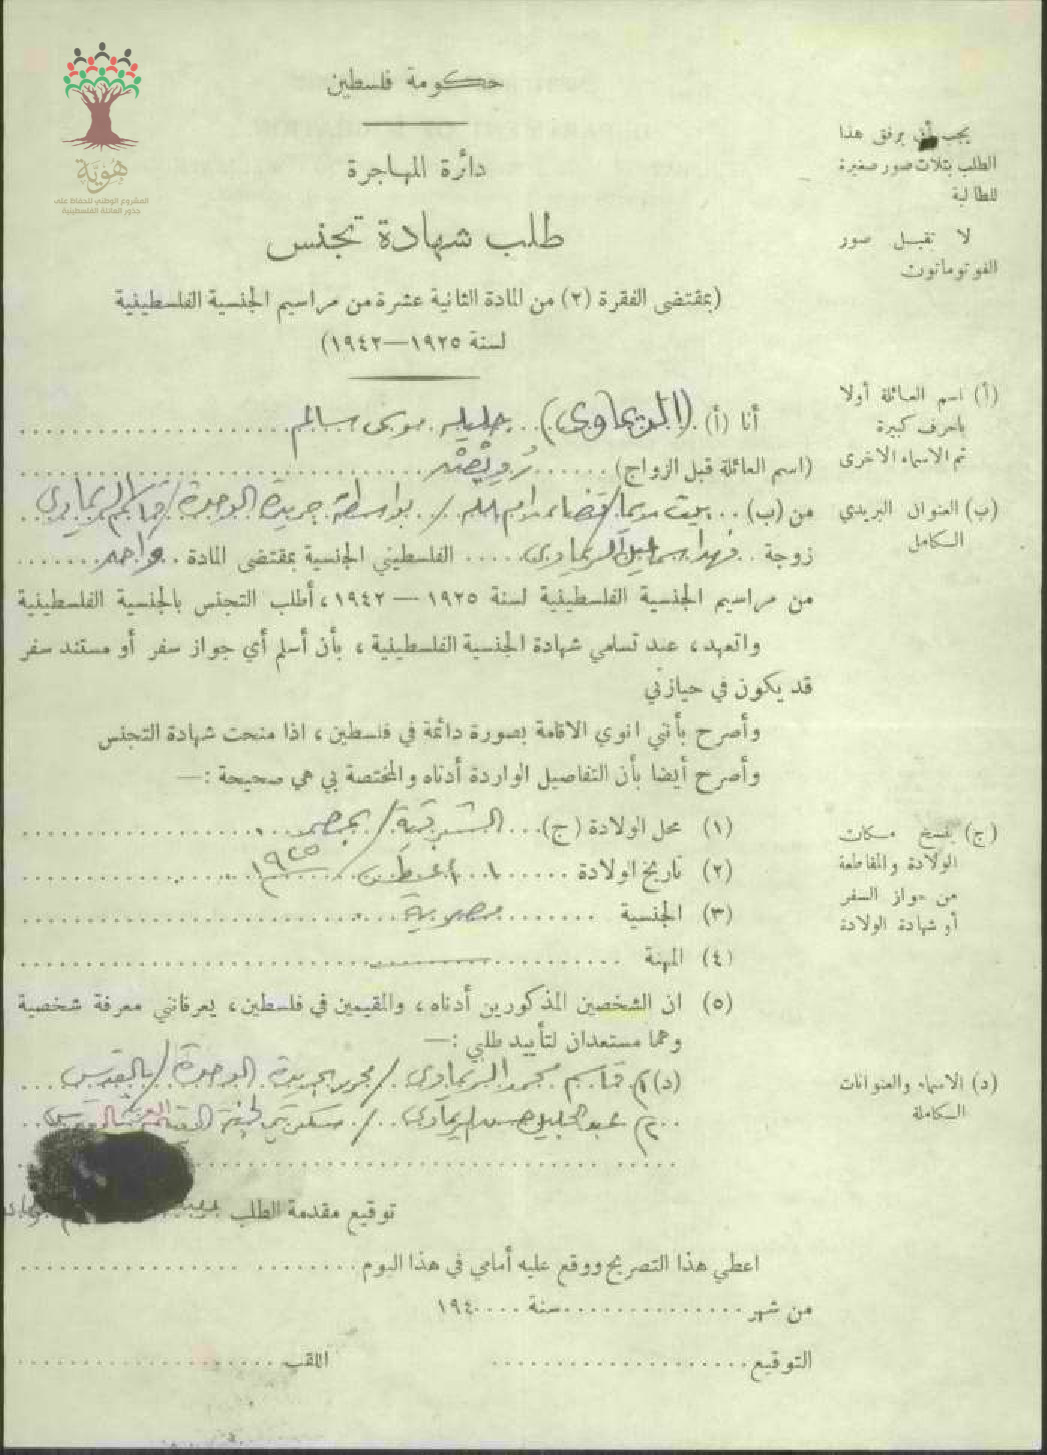 هُوِيَّة
المشروع الوطني للحفاظ على
جذور العائلة الفلسطينية
حكومة فلسطين
دائرة المهاجرة
طلب شهادة تجنس
(بمقتضى الفقرة (٢) من المادة الثانية عشرة من مراسيم الجنسية الفلسطينية
لسنة ١٩٢٥—١٩٤٢)
يجب أن يرفق هذا
الطلب بثلاث صور صغيرة
للطالبة
لا تقبل صور
الفوتوماتون
(أ) اسم العائلة أولا
باحرف كبيرة
ثم الاسماء الاخرى
أنا (أ) (الريماوي) جليله موسى سالم
(اسم العائلة قبل الزواج)
(ب) العنوان البريدي
الكامل
من (ب) بيت ريما / قضاء رام الله / بواسطة جريدة الوحدة / قاسم الريماوي
زوجة فهد اسماعيل الريماوي الفلسطيني الجنسية بمقتضى المادة واحد
من مراسيم الجنسية الفلسطينية لسنة ١٩٢٥ — ١٩٤٢، أطلب التجنس بالجنسية الفلسطينية
واتعهد، عند تسلمي شهادة الجنسية الفلسطينية، بأن أسلم أي جواز سفر أو مستند سفر
قد يكون في حيازتي
وأصرح بأنني انوي الاقامة بصورة دائمة في فلسطين، اذا منحت شهادة التجنس
وأصرح أيضا بأن التفاصيل الواردة أدناه والمختصة بي هي صحيحة :—
(ج) ينسخ مكان
الولادة والمقاطعة
من جواز السفر
أو شهادة الولادة
(١) محل الولادة (ج) الشرقية / بمصر
(٢) تاريخ الولادة ١ أغسطس ١٩٢٥
(٣) الجنسية مصرية
(٤) المهنة
(٥) ان الشخصين المذكورين أدناه، والمقيمين في فلسطين، يعرفانني معرفة شخصية
وهما مستعدان لتأييد طلبي :—
(د) الاسماء والعنوانات
الكاملة
(د) ١) قاسم محمد الريماوي / محرر بجريدة الوحدة / بالقدس
٢) عبد الجليل حسن الريماوي / سكرتير لجنة
توقيع مقدمة الطلب
اعطي هذا التصريح ووقع عليه أمامي في هذا اليوم
من شهر سنة ١٩٤
التوقيع اللقب